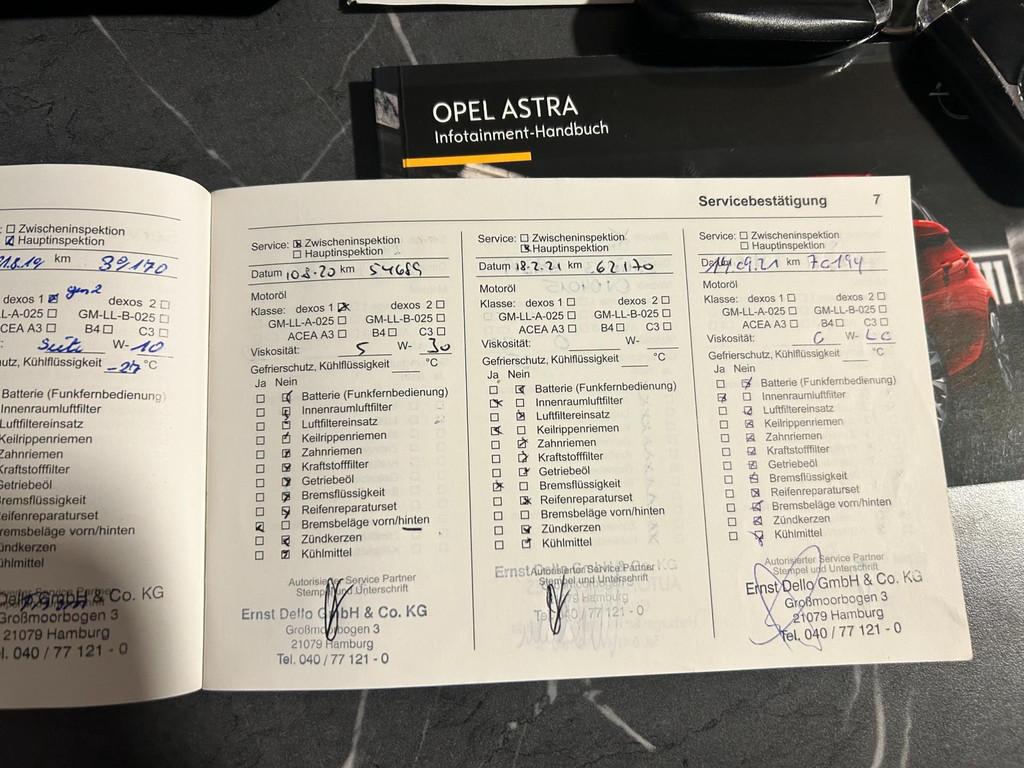 OPEL ASTRA
Infotainment-Handbuch
Servicebestätigung 7
: ☐ Zwischeninspektion
☑ Hauptinspektion
km 39170
dexos 1 ☒ gen2 dexos 2 ☐
L-A-025 ☐ GM-LL-B-025 ☐
ACEA A3 ☐ B4 ☐ C3 ☐
: W- 10
utz, Kühlflüssigkeit -27 °C
Batterie (Funkfernbedienung)
Innenraumluftfilter
Luftfiltereinsatz
Keilrippenriemen
Zahnriemen
Kraftstofffilter
Getriebeöl
Bremsflüssigkeit
Reifenreparaturset
Bremsbeläge vorn/hinten
Zündkerzen
Kühlmittel
Dello GmbH & Co. KG
Großmoorbogen 3
21079 Hamburg
el. 040 / 77 121 - 0
Service: ☒ Zwischeninspektion
☐ Hauptinspektion
Datum 10 8.20 km 54689
Motoröl
Klasse: dexos 1 ☒ dexos 2 ☐
GM-LL-A-025 ☐ GM-LL-B-025 ☐
ACEA A3 ☐ B4 ☐ C3 ☐
Viskosität: 5 W- 30
Gefrierschutz, Kühlflüssigkeit °C
Ja Nein
☐ ☑ Batterie (Funkfernbedienung)
☐ ☑ Innenraumluftfilter
☐ ☑ Luftfiltereinsatz
☐ ☑ Keilrippenriemen
☐ ☑ Zahnriemen
☐ ☑ Kraftstofffilter
☐ ☑ Getriebeöl
☐ ☑ Bremsflüssigkeit
☐ ☑ Reifenreparaturset
☑ ☐ Bremsbeläge vorn/hinten
☐ ☑ Zündkerzen
☐ ☑ Kühlmittel
Autorisierter Service Partner
Stempel und Unterschrift
Ernst Dello GmbH & Co. KG
Großmoorbogen 3
21079 Hamburg
Tel. 040 / 77 121 - 0
Service: ☐ Zwischeninspektion
☒ Hauptinspektion
Datum 18.2.21 km 62170
Motoröl
Klasse: dexos 1 ☐ dexos 2 ☐
GM-LL-A-025 ☐ GM-LL-B-025 ☐
ACEA A3 ☐ B4 ☐ C3 ☐
Viskosität: W-
Gefrierschutz, Kühlflüssigkeit °C
Ja Nein
☐ ☒ Batterie (Funkfernbedienung)
☒ ☐ Innenraumluftfilter
☐ ☒ Luftfiltereinsatz
☒ ☐ Keilrippenriemen
☐ ☒ Zahnriemen
☐ ☒ Kraftstofffilter
☐ ☒ Getriebeöl
☒ ☐ Bremsflüssigkeit
☐ ☒ Reifenreparaturset
☐ ☐ Bremsbeläge vorn/hinten
☐ ☑ Zündkerzen
☐ ☑ Kühlmittel
Autorisierter Service Partner
Stempel und Unterschrift
Tel. 040 / 77 121 - 0
Service: ☐ Zwischeninspektion
☐ Hauptinspektion
Datum 14.09.21 km
Motoröl
Klasse: dexos 1 ☐ dexos 2 ☐
GM-LL-A-025 ☐ GM-LL-B-025 ☐
ACEA A3 ☐ B4 ☐ C3 ☐
Viskosität: W-
Gefrierschutz, Kühlflüssigkeit °C
Ja Nein
☐ ☑ Batterie (Funkfernbedienung)
☒ ☐ Innenraumluftfilter
☐ ☑ Luftfiltereinsatz
☐ ☑ Keilrippenriemen
☐ ☑ Zahnriemen
☐ ☑ Kraftstofffilter
☐ ☑ Getriebeöl
☐ ☑ Bremsflüssigkeit
☐ ☑ Reifenreparaturset
☐ ☑ Bremsbeläge vorn/hinten
☐ ☑ Zündkerzen
☐ ☑ Kühlmittel
Autorisierter Service Partner
Stempel und Unterschrift
Ernst Dello GmbH & Co. KG
Großmoorbogen 3
21079 Hamburg
Tel. 040 / 77 121 - 0